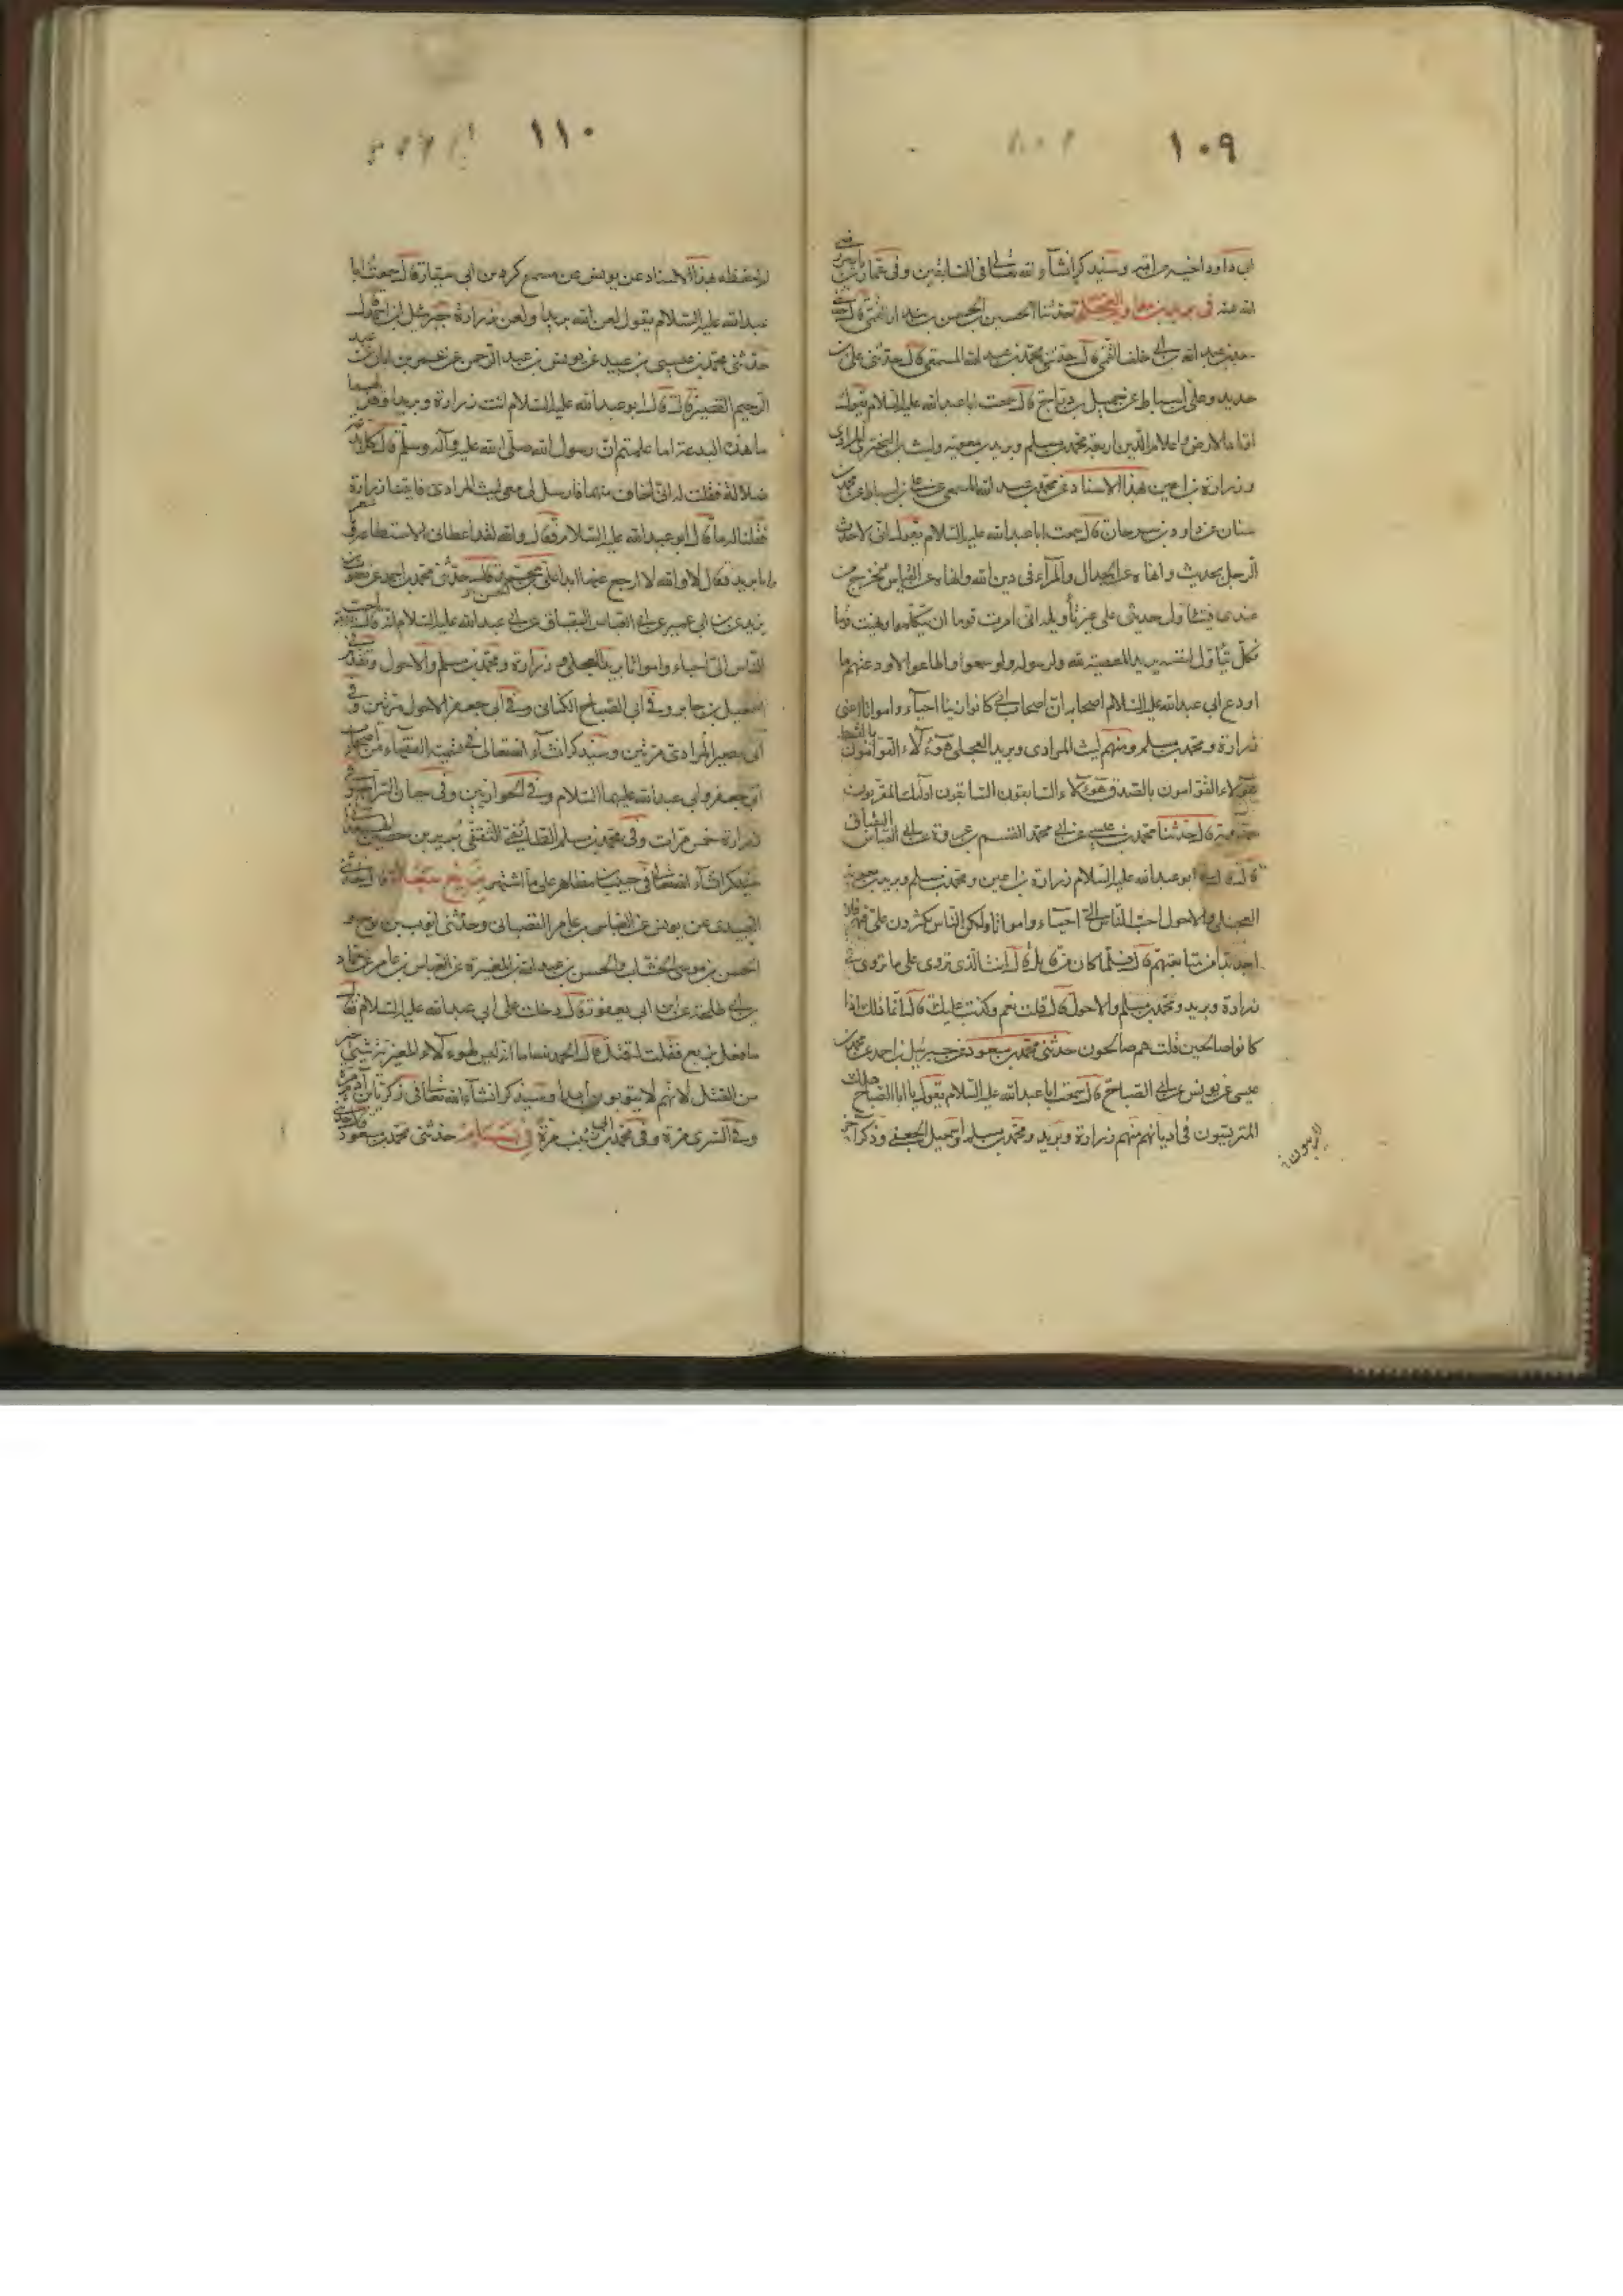 ١٠٩
ابي داود اخيه مرافيه وسنيد كرانشاء الله تعالى في السابقين وفي عمار بن ياسر رضي
الله عنه في بريد بن معاوية العجلي حدثنا الحسين بن الحسن بن بندار القمي قال حدثني
سعد بن عبد الله بن ابي خلف القمي قال حدثني محمد بن عبد الله المسمعي قال حدثني علي بن
حديد وعلي بن اسباط عن جميل بن دراج قال سمعت ابا عبد الله عليه السلام يقول
اوتاد الارض واعلام الدين اربعة محمد بن مسلم وبريد بن معوية وليث بن البختري المرادي
وزرارة بن اعين بهذا الاسناد عن محمد بن عبد الله المسمعي عن علي بن اسباط عن محمد بن
سنان عن داود بن سرحان قال سمعت ابا عبد الله عليه السلام يقول اني لاحدث
الرجل بحديث وانهاه عن الجدال والمرآء في دين الله وانهاه عن القياس فيخرج من
عندي فيتناول حديثي على غير تأويله اني امرت قوما ان يتكلموا ونهيت قوما
فكل يتأول لنفسه يريد المعصية لله ولرسوله ولو سمعوا واطاعوا لاودعتهم ما
اودع ابي عبد الله عليه السلام اصحابه ان اصحاب ابي كانوا زينا احياء وامواتا اعني
زرارة ومحمد بن مسلم ومنهم ليث المرادي وبريد العجلي هؤلاء القوامون بالقسط
هؤلاء القوامون بالصدق هؤلاء السابقون السابقون اولئك المقربون
قال حدثنا محمد بن عيسى عن ابي محمد القسم بن عروة عن ابي العباس البقباق
قال ابو عبد الله عليه السلام زرارة بن اعين ومحمد بن مسلم وبريد بن معوية
العجلي والاحول احب الناس الي احياء وامواتا ولكن الناس يكثرون علي فيهم فلا
اجد بدا من متابعتهم قال فلما كان من قابل قال انت الذي تروي على ما تروي في
زرارة وبريد ومحمد بن مسلم والاحول قال قلت نعم وكذبت عليك قال انما ذلك اذا
كانوا صالحين قلت هم صالحون حدثني محمد بن مسعود عن جبرئيل بن احمد عن محمد بن
عيسى عن يونس عن ابي الصباح قال سمعت ابا عبد الله عليه السلام يقول يا ابا الصباح هلك
المتريسون في اديانهم منهم زرارة وبريد ومحمد بن مسلم واسمعيل الجعفي وذكر آخر
١١٠
لم احفظه بهذا الاسناد عن يونس عن مسمع كردين ابي سيار قال سمعت ابا
عبد الله عليه السلام يقول لعن الله بريدا ولعن زرارة جبرئيل بن احمد قال
حدثني محمد بن عيسى بن عبيد عن يونس بن عبد الرحمن عن عمر بن ابان عن عبد
الرحيم القصير قال قال ابو عبد الله عليه السلام ائت زرارة وبريدا وقل لهما
ما هذه البدعة اما علمتم ان رسول الله صلى الله عليه وآله وسلم قال كل بدعة
ضلالة فقلت له اني اخاف منهما فارسل لي معي ليث المرادي فاتينا زرارة
فقلنا له ما قال ابو عبد الله عليه السلام فقال والله لقد اعطاني الاستطاعة وما شعر
واما بريد فقال لا والله لا ارجع عنها ابدا حدثني محمد بن احمد عن يعقوب بن
يزيد عن ابن ابي عمير عن ابي العباس البقباق عن ابي عبد الله عليه السلام انه قال
الناس الي احياء وامواتا بريد العجلي وزرارة ومحمد بن مسلم والاحول
اسمعيل بن جابر وفي ابي الصباح الكناني وفي ابي جعفر الاحول مرتين وفي
ابي بصير المرادي مرتين وسنذكر انشاء الله تعالى في تسمية الفقهاء من اصحاب
ابي جعفر وابي عبد الله عليهما السلام وفي الحواريين وفي
زرارة خمس مرات وفي محمد بن مسلم الطائفي الثقفي
سنذكر انشاء الله تعالى في حبيب بن مظاهر على ما اشتهر
العبيدي عن يونس عن العباس بن عامر القصباني وحدثني ايوب بن نوح و
الحسن بن موسى الخشاب والحسن بن عبد الله بن المغيرة عن العباس بن عامر عن حماد
بن ابي طلحة عن ابن ابي يعفور قال دخلت على ابي عبد الله عليه السلام فقال
ما فعل بزيع فقلت له قتل قال الحمد لله اما انه ليس لهؤلاء المغيرية شيء خير
من القتل لانهم لا يتوبون ابدا وسنذكر انشاء الله تعالى في زكريا بن آدم مرة
وفي السري مرة وفي محمد بن ابي زينب مرة في بسام حدثني محمد بن مسعود